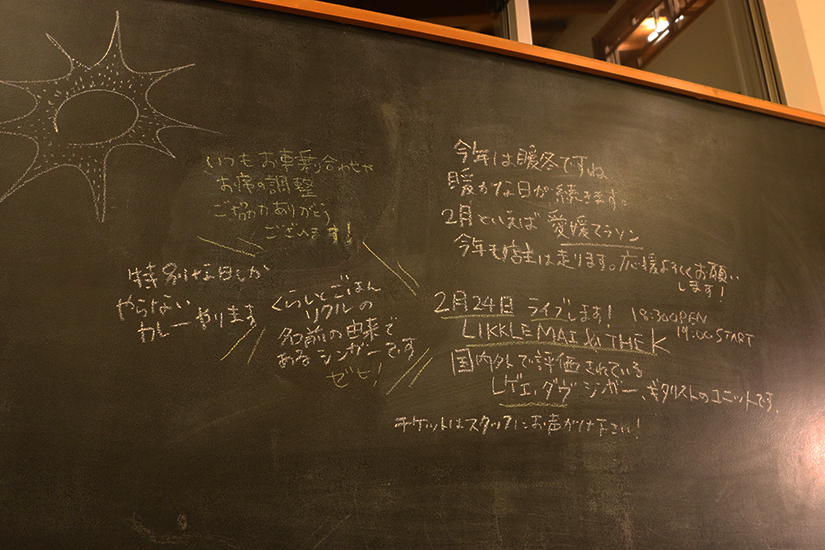 いつもお車乗り合わせや
お席の調整
ご協力ありがとう
ございます!
特別な日しか
やらない
カレーやります
くらしとごはん
リクルの
名前の由来で
あるシンガーです
ぜひ!
今年は暖冬ですね
暖かな日が続きます。
2月といえば 愛媛マラソン
今年も店主は走ります。応援よろしくお願い
します!
2月24日 ライブします! 18:30 OPEN
19:00 START
LIKKLE MAI & THE K
国内外で評価されている
レゲエ、ダヴ シンガー、ギタリストのユニットです。
チケットはスタッフにお声がけ下さい!